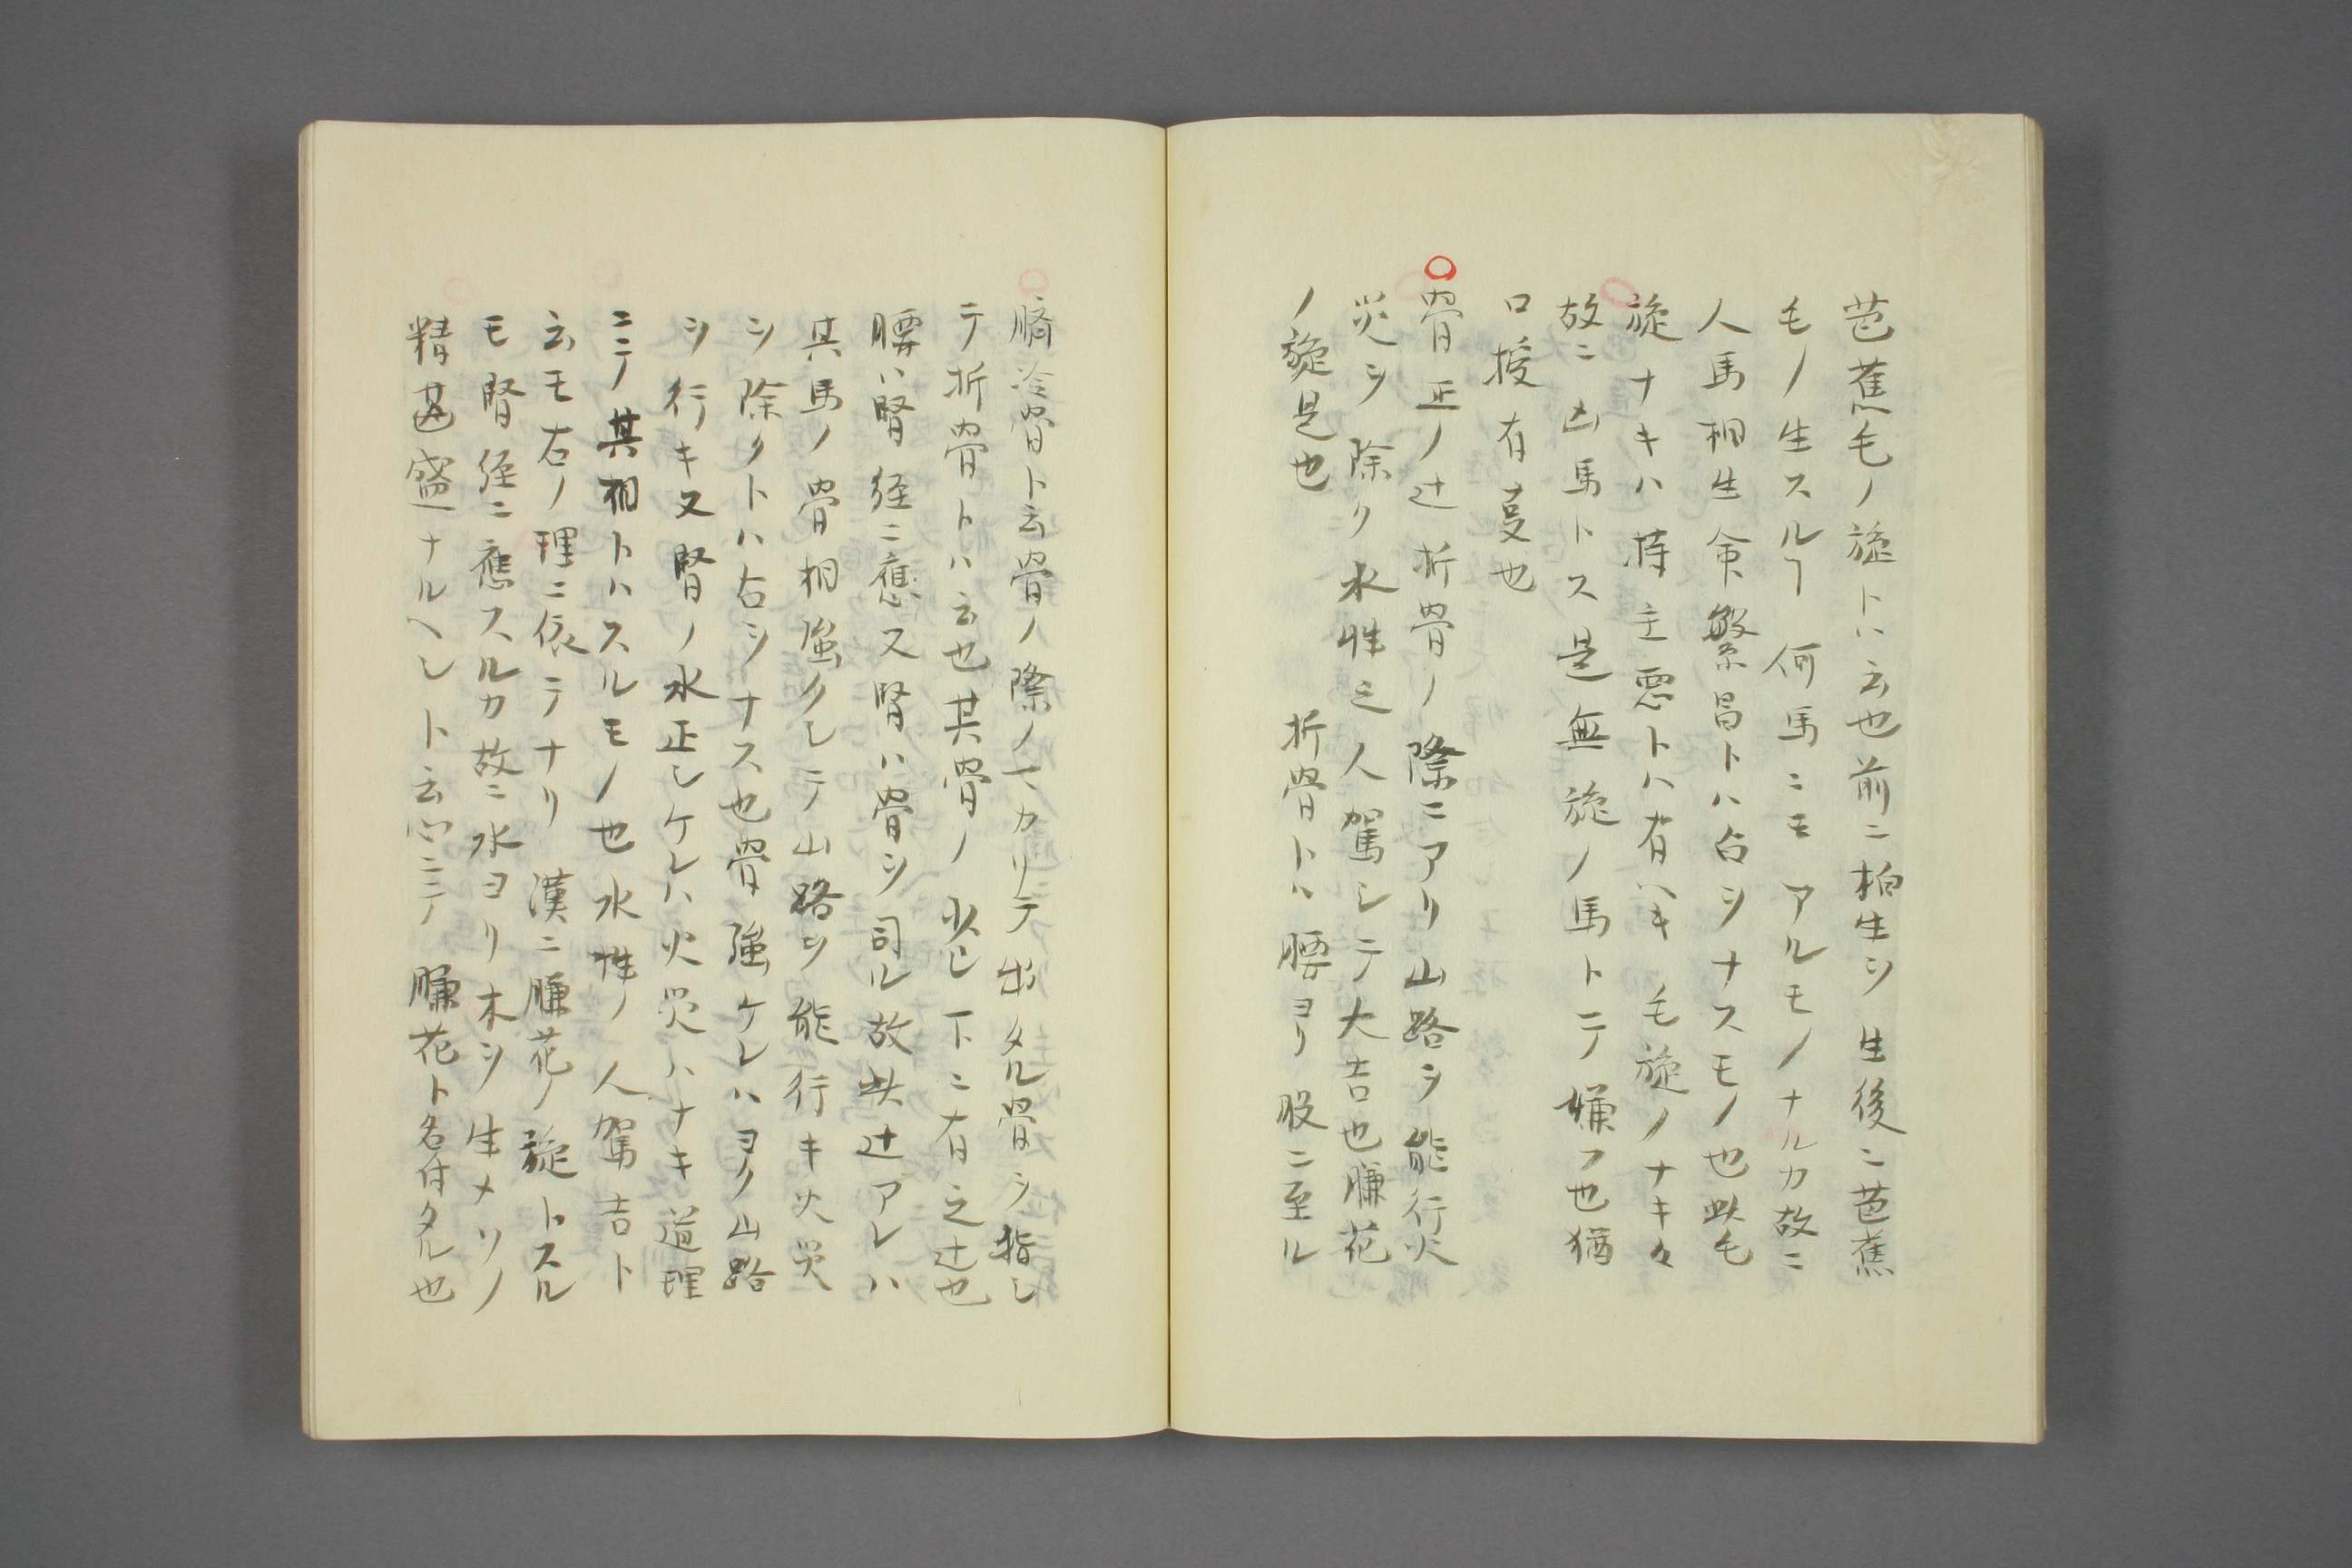 芭蕉毛ノ旋トハ云也前ニ柏生シ生後ニ芭蕉
毛ノ生スルヿ何馬ニモアルモノナルカ故ニ
人馬相生命繁昌トハ占シナスモノ也此毛
旋ナキハ持主悪トハ有ヘキ毛旋ノナキヲ
故ニ凶馬トス是無旋ノ馬トテ嫌フ也猶
口授有叓也
〇骨正ノ辻折骨ノ際ニアリ山路ヲ能行火
災ヲ除ク水性之人駕シテ大吉也膁花
ノ旋是也　折骨トハ腰ヨリ股ニ至ル
膌冷骨ト云骨ノ際ノ高カリテ出タル骨ヲ指シ
テ折骨トハ云也其骨ノ少シ下ニ有之辻也
腰ハ腎経ニ應又腎ハ骨ヲ司ル故此辻アレハ
其馬ノ骨相強クシテ山路ヲ能行キ火災
ヲ除クトハ占シナス也骨強ケレハヨク山路
ヲ行キ又腎ノ水正シケレハ火災ハナキ道理
ニテノ其相トハスルモノ也水性ノ人駕吉ト
云モ右ノ理ニ依テナリ漢ニ膁花ノ旋トスル
モ腎経ニ應スルカ故ニ水ヨリ木ヲ生メソノ
精甚盛ナルヘシト云心ニテノ膁花ト名付タル也